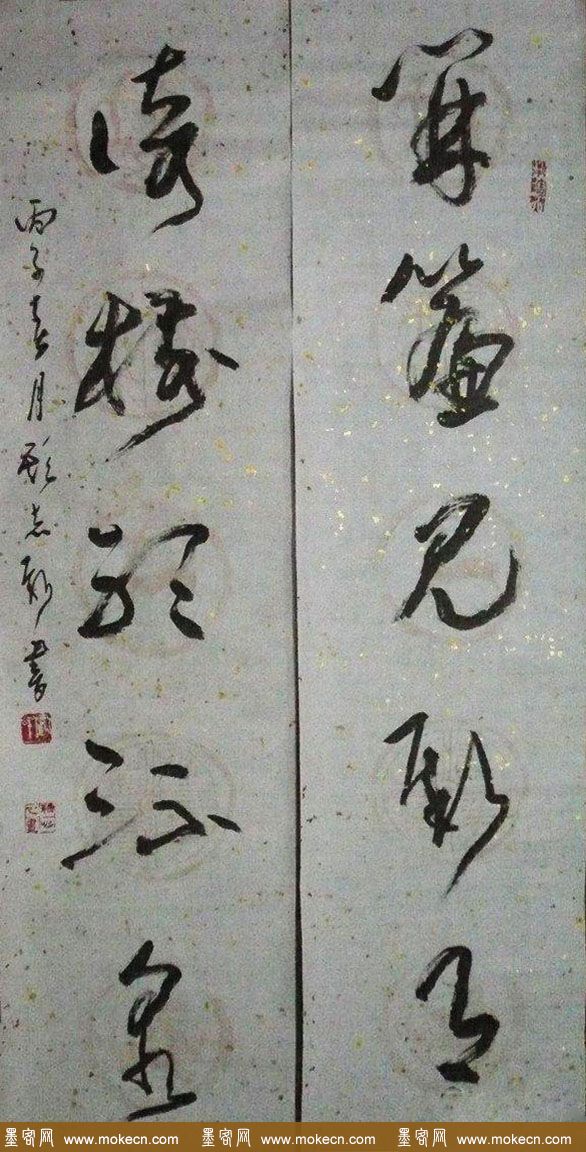 開簾見新月
倚樹聽流泉
丙子春月 志 書
墨客网 www.mokecn.com 墨客网 www.mokecn.com 墨客网 www.mokecn.com